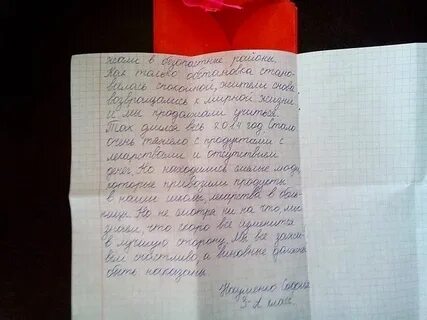 жали в безопастные районы.
Как только обстановка стано-
вилась спокойной, жители снова
возвращались к мирной жизни
и мы продолжали учиться.
Так длился весь 2014 год. Стало
очень тяжело с продуктами с
лекарствами и отсутствием
денег. Но находились смелые люди,
которые привозили продукты
в наши школы, лекарства в боль-
ницу. Но не смотря ни на что, мы
знаем, что скоро все изменится
в лучшую сторону. Мы все зажи-
вём счастливо, а виновные должны
быть наказаны.
Науменко
3-А класс.